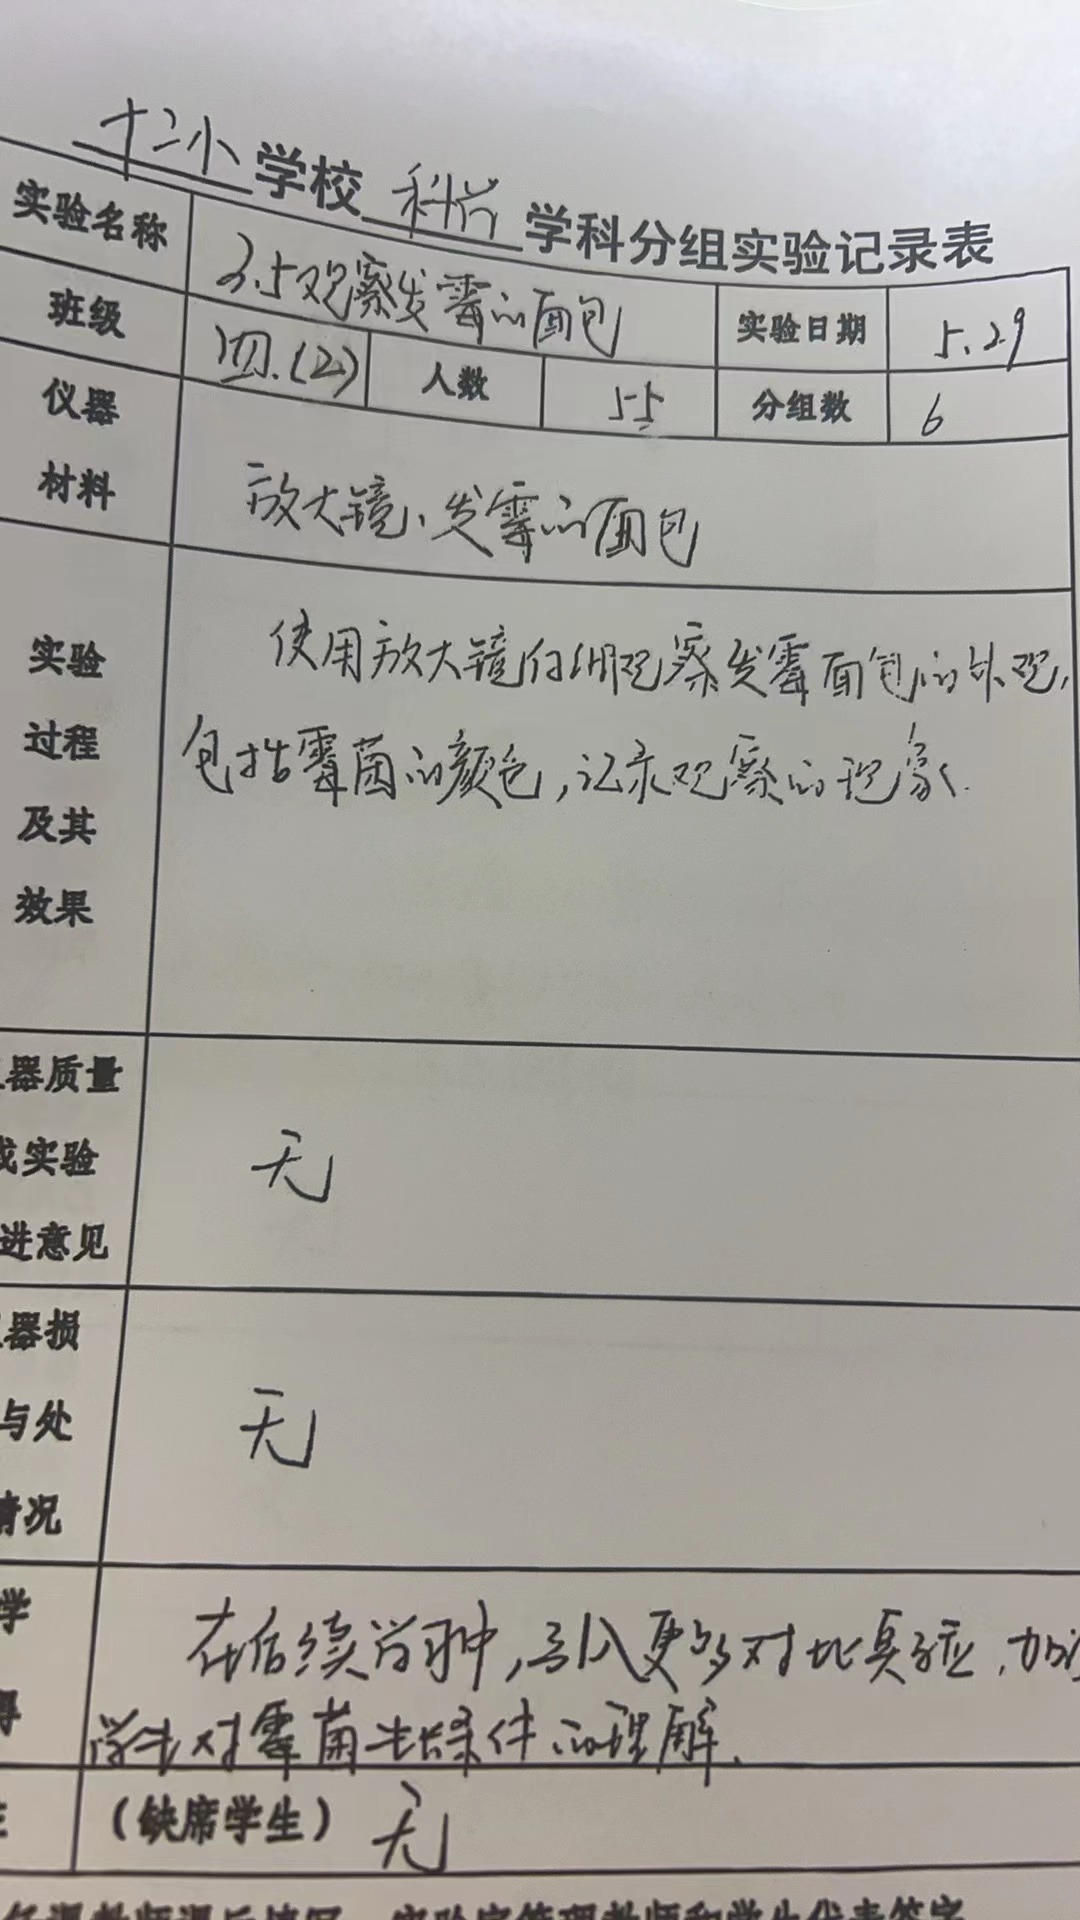 十二小学校 科学 学科分组实验记录表
实验名称 3.5观察发霉的面包 实验日期 5.29
班级 四.(2) 人数 55 分组数 6
仪器
材料
放大镜、发霉的面包
实验
过程
及其
效果
使用放大镜仔细观察发霉面包的外观,
包括霉菌的颜色,记录观察的现象.
器质量
或实验
进意见
无
器损
与处
情况
无
学
得
在后续学习中,引入更多对比实验,加深
学生对霉菌生长条件的理解.
(缺席学生) 无
任课教师课后填写,实验室管理教师和学生代表签字